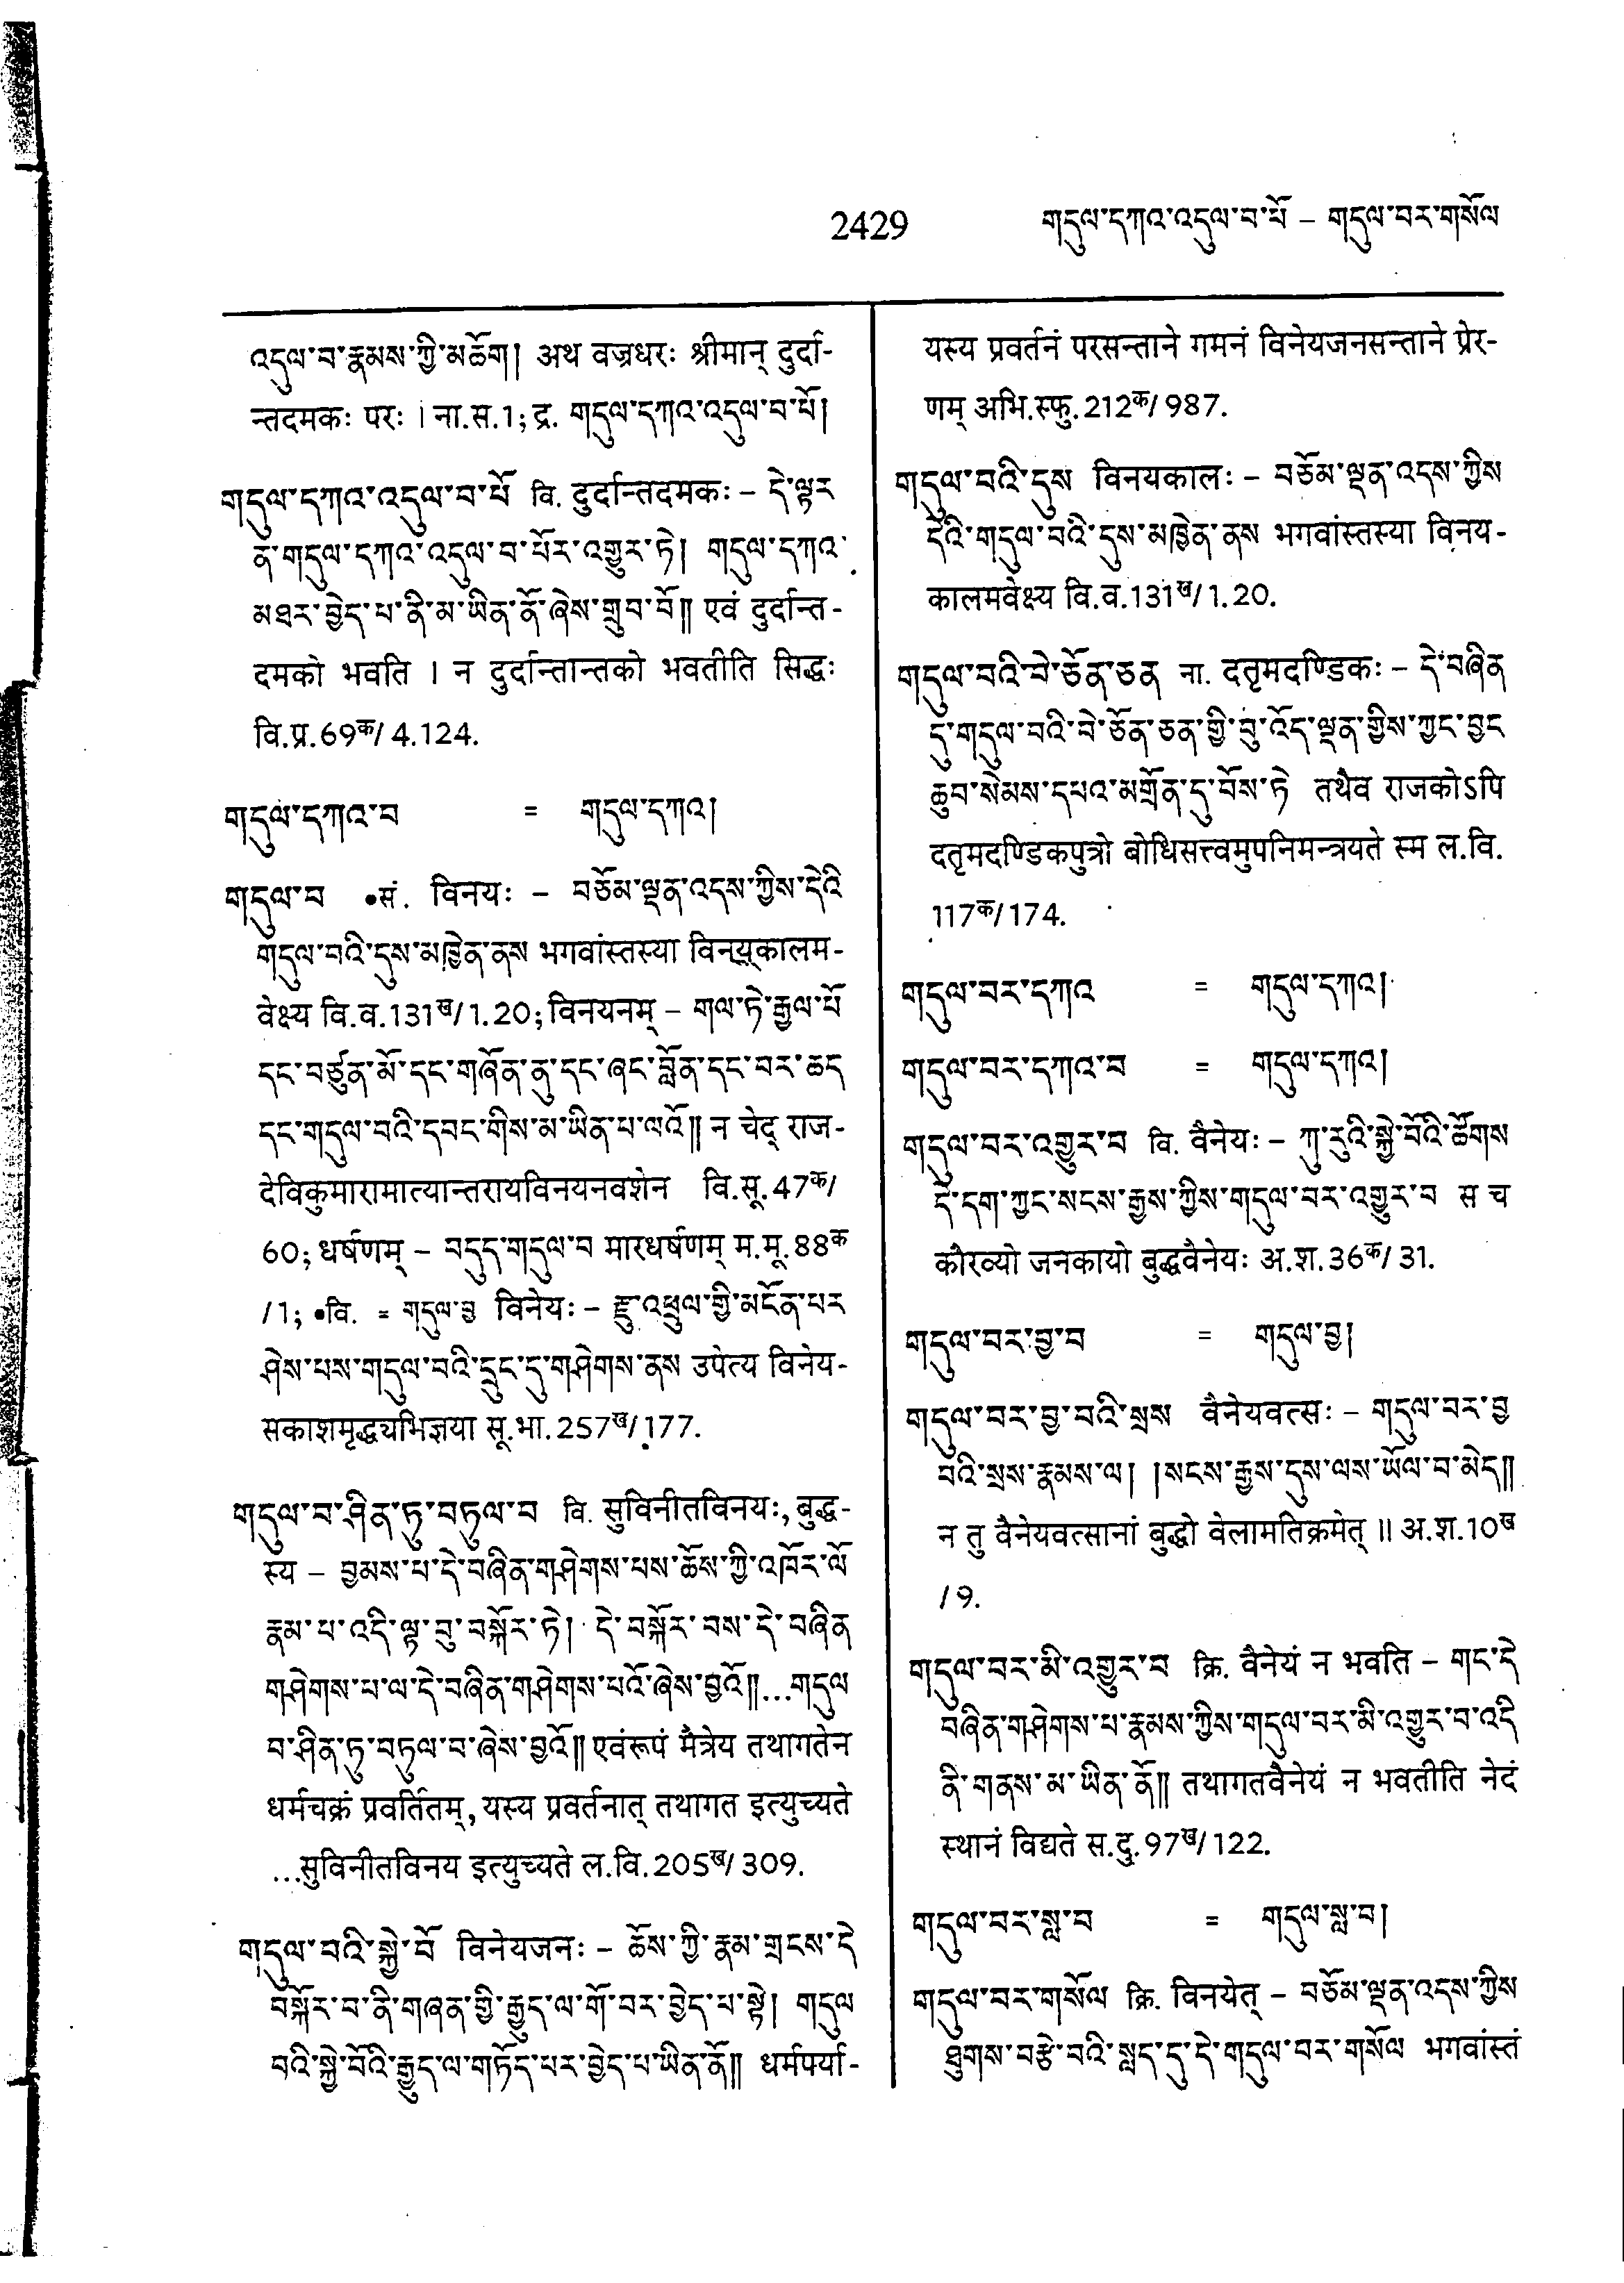 2429 གདུལ་དཀའ་འདུལ་བ་པོ – གདུལ་བར་གསོལ
འདུལ་བ་རྣམས་ཀྱི་མཆོག། अथ वज्रधरः श्रीमान् दुर्दा-
न्तदमकः परः । ना.स.1; द्र. གདུལ་དཀའ་འདུལ་བ་པོ།
གདུལ་དཀའ་འདུལ་བ་པོ वि. दुर्दान्तदमकः – དེ་ལྟར
ན་གདུལ་དཀའ་འདུལ་བ་པོར་འགྱུར་ཏེ། གདུལ་དཀའ་
མཐར་བྱེད་པ་ནི་མ་ཡིན་ནོ་ཞེས་གྲུབ་བོ༎ एवं दुर्दान्त-
दमको भवति । न दुर्दान्तान्तको भवतीति सिद्धः
वि.प्र.69क/4.124.
གདུལ་དཀའ་བ = གདུལ་དཀའ།
གདུལ་བ •सं. विनयः – བཅོམ་ལྡན་འདས་ཀྱིས་དེའི
གདུལ་བའི་དུས་མཁྱེན་ནས भगवांस्तस्या विनयकालम-
वेक्ष्य वि.व.131ख/1.20; विनयनम् – གལ་ཏེ་རྒྱལ་པོ
དང་བཙུན་མོ་དང་གཞོན་ནུ་དང་ཞང་བློན་དང་བར་ཆད
དང་གདུལ་བའི་དབང་གིས་མ་ཡིན་པ་ལའོ༎ न चेद् राज-
देविकुमारामात्यान्तरायविनयनवशेन वि.सू.47क/
60; धर्षणम् – བདུད་གདུལ་བ मारधर्षणम् म.मू.88क
/1; •वि. = གདུལ་བྱ विनेयः – རྫུ་འཕྲུལ་གྱི་མངོན་པར
ཤེས་པས་གདུལ་བའི་དྲུང་དུ་གཤེགས་ནས उपेत्य विनेय-
सकाशमृद्ध्यभिज्ञया सू.भा.257ख/177.
གདུལ་བ་ཤིན་ཏུ་བཏུལ་བ वि. सुविनीतविनयः, बुद्ध-
स्य – བྱམས་པ་དེ་བཞིན་གཤེགས་པས་ཆོས་ཀྱི་འཁོར་ལོ
རྣམ་པ་འདི་ལྟ་བུ་བསྐོར་ཏེ། དེ་བསྐོར་བས་དེ་བཞིན
གཤེགས་པ་ལ་དེ་བཞིན་གཤེགས་པའོ་ཞེས་བྱའོ༎...གདུལ
བ་ཤིན་ཏུ་བཏུལ་བ་ཞེས་བྱའོ༎ एवंरूपं मैत्रेय तथागतेन
धर्मचक्रं प्रवर्तितम्, यस्य प्रवर्तनात् तथागत इत्युच्यते
...सुविनीतविनय इत्युच्यते ल.वि.205ख/309.
གདུལ་བའི་སྐྱེ་བོ विनेयजनः – ཆོས་ཀྱི་རྣམ་གྲངས་དེ
བསྐོར་བ་ནི་གཞན་གྱི་རྒྱུད་ལ་གོ་བར་བྱེད་པ་སྟེ། གདུལ
བའི་སྐྱེ་བོའི་རྒྱུད་ལ་གཏོད་པར་བྱེད་པ་ཡིན་ནོ༎ धर्मपर्या-
यस्य प्रवर्तनं परसन्ताने गमनं विनेयजनसन्ताने प्रेर-
णम् अभि.स्फु.212क/987.
གདུལ་བའི་དུས विनयकालः – བཅོམ་ལྡན་འདས་ཀྱིས
དེའི་གདུལ་བའི་དུས་མཁྱེན་ནས भगवांस्तस्या विनय-
कालमवेक्ष्य वि.व.131ख/1.20.
གདུལ་བའི་བེ་ཅོན་ཅན ना. दतृमदण्डिकः – དེ་བཞིན
དུ་གདུལ་བའི་བེ་ཅོན་ཅན་གྱི་བུ་འོད་ལྡན་གྱིས་ཀྱང་བྱང
ཆུབ་སེམས་དཔའ་མགྲོན་དུ་བོས་ཏེ तथैव राजकोऽपि
दतृमदण्डिकपुत्रो बोधिसत्त्वमुपनिमन्त्रयते स्म ल.वि.
117क/174.
གདུལ་བར་དཀའ = གདུལ་དཀའ།
གདུལ་བར་དཀའ་བ = གདུལ་དཀའ།
གདུལ་བར་འགྱུར་བ वि. वैनेयः – ཀུ་རུའི་སྐྱེ་བོའི་ཚོགས
དེ་དག་ཀྱང་སངས་རྒྱས་ཀྱིས་གདུལ་བར་འགྱུར་བ स च
कौरव्यो जनकायो बुद्धवैनेयः अ.श.36क/31.
གདུལ་བར་བྱ་བ = གདུལ་བྱ།
གདུལ་བར་བྱ་བའི་སྲས वैनेयवत्सः – གདུལ་བར་བྱ
བའི་སྲས་རྣམས་ལ། །སངས་རྒྱས་དུས་ལས་ཡོལ་བ་མེད༎
न तु वैनेयवत्सानां बुद्धो वेलामतिक्रमेत् ॥ अ.श.10ख
/9.
གདུལ་བར་མི་འགྱུར་བ क्रि. वैनेयं न भवति – གང་དེ
བཞིན་གཤེགས་པ་རྣམས་ཀྱིས་གདུལ་བར་མི་འགྱུར་བ་འདི
ནི་གནས་མ་ཡིན་ནོ༎ तथागतवैनेयं न भवतीति नेदं
स्थानं विद्यते स.दु.97ख/122.
གདུལ་བར་སླ་བ = གདུལ་སླ་བ།
གདུལ་བར་གསོལ क्रि. विनयेत् – བཅོམ་ལྡན་འདས་ཀྱིས
ཐུགས་བརྩེ་བའི་སླད་དུ་དེ་གདུལ་བར་གསོལ भगवांस्तं